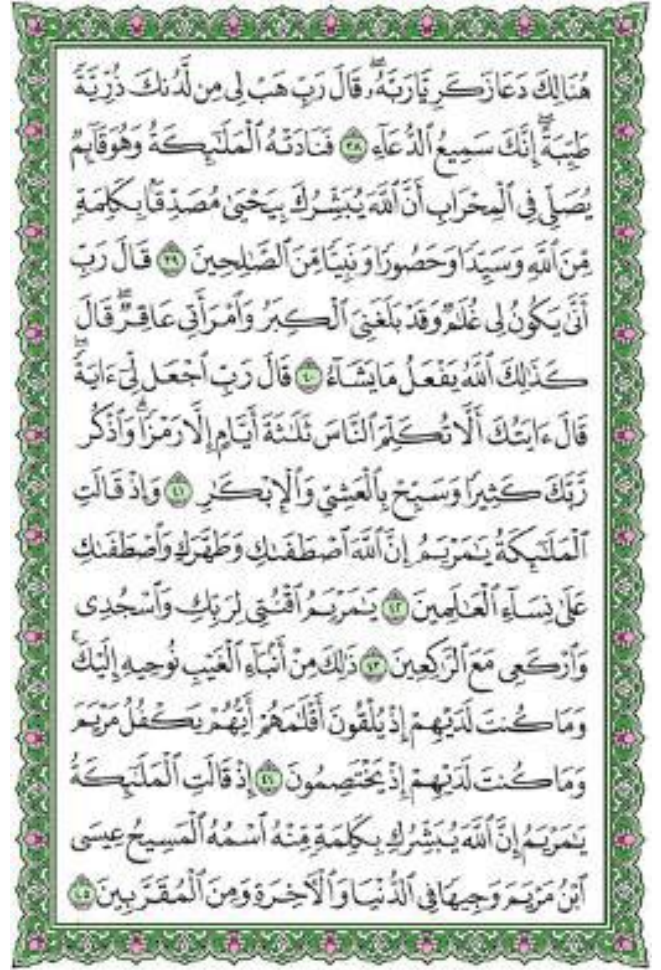 هُنَالِكَ دَعَا زَكَرِيَّا رَبَّهُۥۖ قَالَ رَبِّ هَبْ لِى مِن لَّدُنكَ ذُرِّيَّةً
طَيِّبَةًۖ إِنَّكَ سَمِيعُ ٱلدُّعَآءِ ٣٨ فَنَادَتْهُ ٱلْمَلَٰٓئِكَةُ وَهُوَ قَآئِمٌ
يُصَلِّى فِى ٱلْمِحْرَابِ أَنَّ ٱللَّهَ يُبَشِّرُكَ بِيَحْيَىٰ مُصَدِّقًۢا بِكَلِمَةٍ
مِّنَ ٱللَّهِ وَسَيِّدًا وَحَصُورًا وَنَبِيًّا مِّنَ ٱلصَّٰلِحِينَ ٣٩ قَالَ رَبِّ
أَنَّىٰ يَكُونُ لِى غُلَٰمٌ وَقَدْ بَلَغَنِىَ ٱلْكِبَرُ وَٱمْرَأَتِى عَاقِرٌۖ قَالَ
كَذَٰلِكَ ٱللَّهُ يَفْعَلُ مَا يَشَآءُ ٤٠ قَالَ رَبِّ ٱجْعَل لِّىٓ ءَايَةًۖ
قَالَ ءَايَتُكَ أَلَّا تُكَلِّمَ ٱلنَّاسَ ثَلَٰثَةَ أَيَّامٍ إِلَّا رَمْزًاۗ وَٱذْكُر
رَّبَّكَ كَثِيرًا وَسَبِّحْ بِٱلْعَشِىِّ وَٱلْإِبْكَٰرِ ٤١ وَإِذْ قَالَتِ
ٱلْمَلَٰٓئِكَةُ يَٰمَرْيَمُ إِنَّ ٱللَّهَ ٱصْطَفَىٰكِ وَطَهَّرَكِ وَٱصْطَفَىٰكِ
عَلَىٰ نِسَآءِ ٱلْعَٰلَمِينَ ٤٢ يَٰمَرْيَمُ ٱقْنُتِى لِرَبِّكِ وَٱسْجُدِى
وَٱرْكَعِى مَعَ ٱلرَّٰكِعِينَ ٤٣ ذَٰلِكَ مِنْ أَنۢبَآءِ ٱلْغَيْبِ نُوحِيهِ إِلَيْكَۚ
وَمَا كُنتَ لَدَيْهِمْ إِذْ يُلْقُونَ أَقْلَٰمَهُمْ أَيُّهُمْ يَكْفُلُ مَرْيَمَ
وَمَا كُنتَ لَدَيْهِمْ إِذْ يَخْتَصِمُونَ ٤٤ إِذْ قَالَتِ ٱلْمَلَٰٓئِكَةُ
يَٰمَرْيَمُ إِنَّ ٱللَّهَ يُبَشِّرُكِ بِكَلِمَةٍ مِّنْهُ ٱسْمُهُ ٱلْمَسِيحُ عِيسَى
ٱبْنُ مَرْيَمَ وَجِيهًا فِى ٱلدُّنْيَا وَٱلْءَاخِرَةِ وَمِنَ ٱلْمُقَرَّبِينَ ٤٥